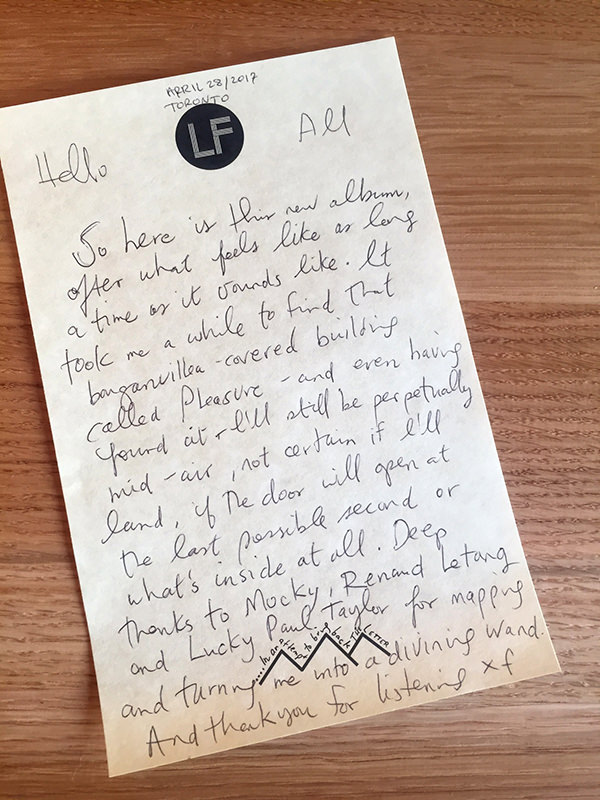 APRIL 28/2017
TORONTO
LF
Hello All
So here is this new album,
after what feels like as long
a time as it sounds like. It
took me a while to find that
bouganvillea-covered building
called Pleasure - and even having
found it, I'll still be perpetually
mid-air, not certain if I'll
land, if the door will open at
the last possible second or
what's inside at all. Deep
thanks to Mocky, Renaud Letang
and Lucky Paul Taylor for mapping
...In an attempt to bring back THE LETTER
and turning me into a divining wand.
And thankyou for listening xf